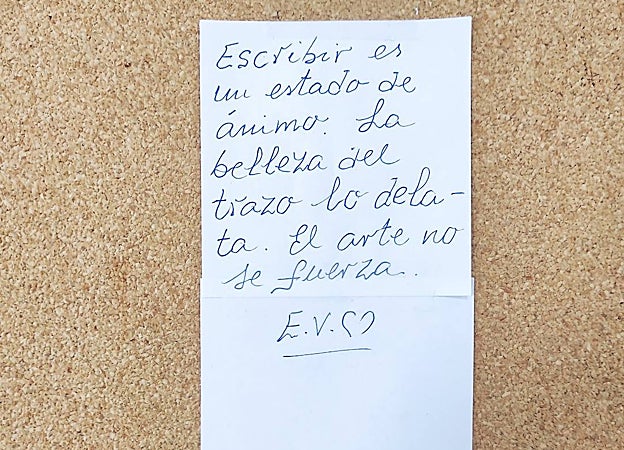 Escribir es
un estado de
ánimo. La
belleza del
trazo lo dela-
ta. El arte no
se fuerza.
E.V.